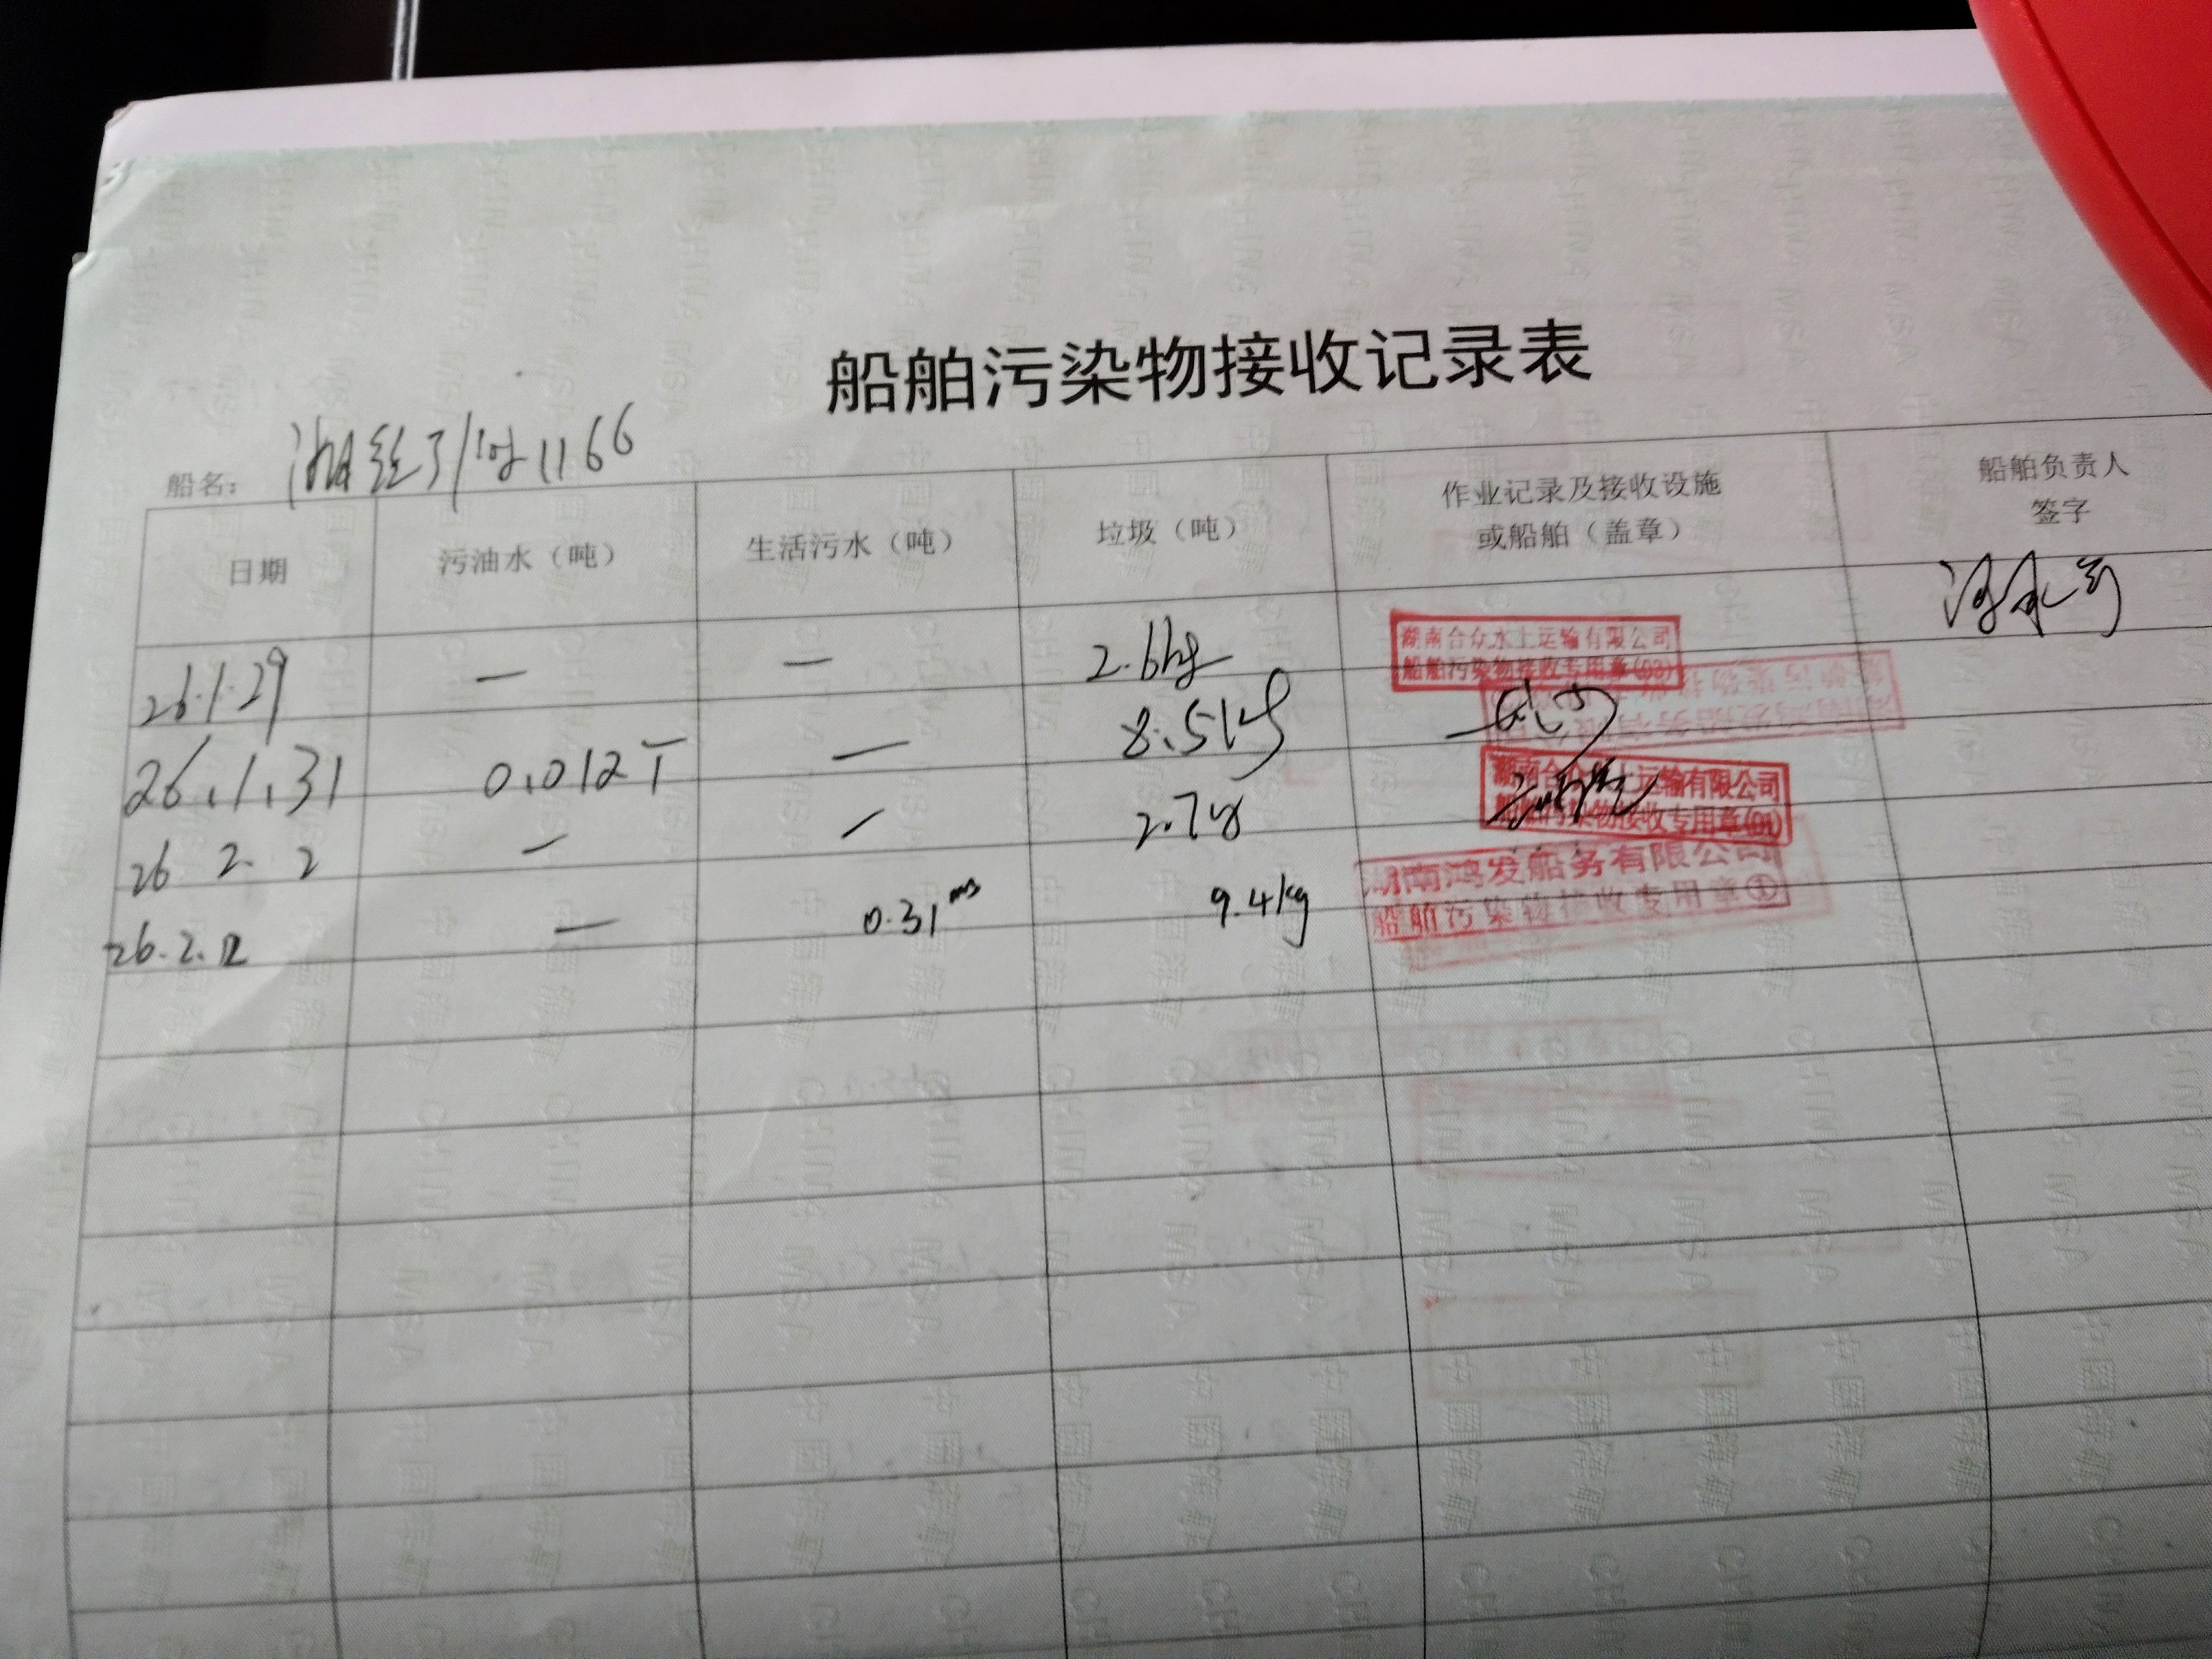 船舶污染物接收记录表
船名： 1166
日期 污油水（吨） 生活污水（吨） 垃圾（吨） 作业记录及接收设施或船舶（盖章） 船舶负责人签字
26.1.29 — — 2.6kg
湖南合众水上运输有限公司
船舶污染物接收专用章(03)
26.1.31 0.012T — 8.5kg
26 2. 2 — — 2.7kg
湖南合众水上运输有限公司
船舶污染物接收专用章(01)
26.2.12 — 0.31m3 9.4kg
湖南鸿发船务有限公司
船舶污染物接收专用章①